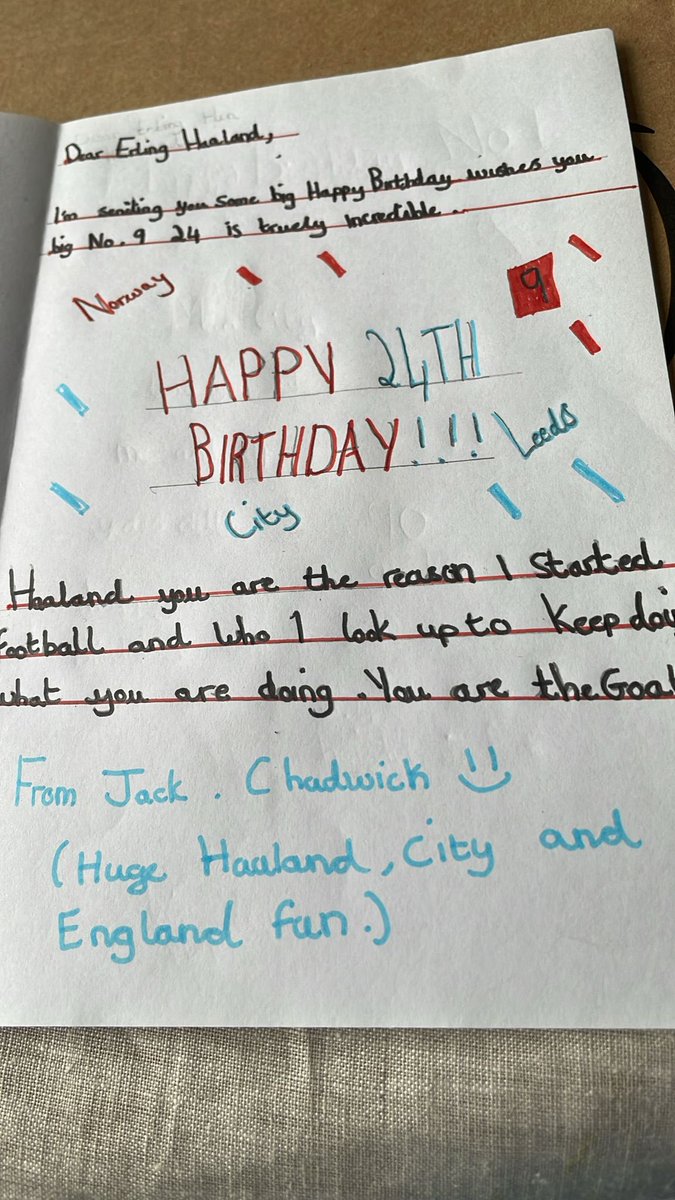 Dear Erling Haaland,
I'm sending you some big Happy Birthday wishes you
big No. 9 24 is truely incredible.
Norway
9
HAPPY 24TH
BIRTHDAY!!!
Leeds
City
Haaland you are the reason I started
football and who I look up to Keep doing
what you are doing. You are the Goat
From Jack. Chadwick
(Huge Haaland, City and
England fan.)